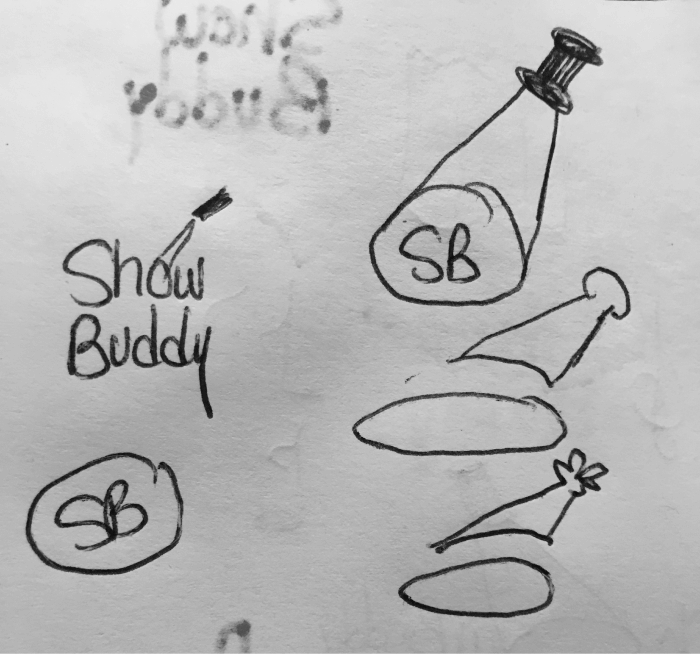 Show
Buddy
SB
Show
Buddy
SB